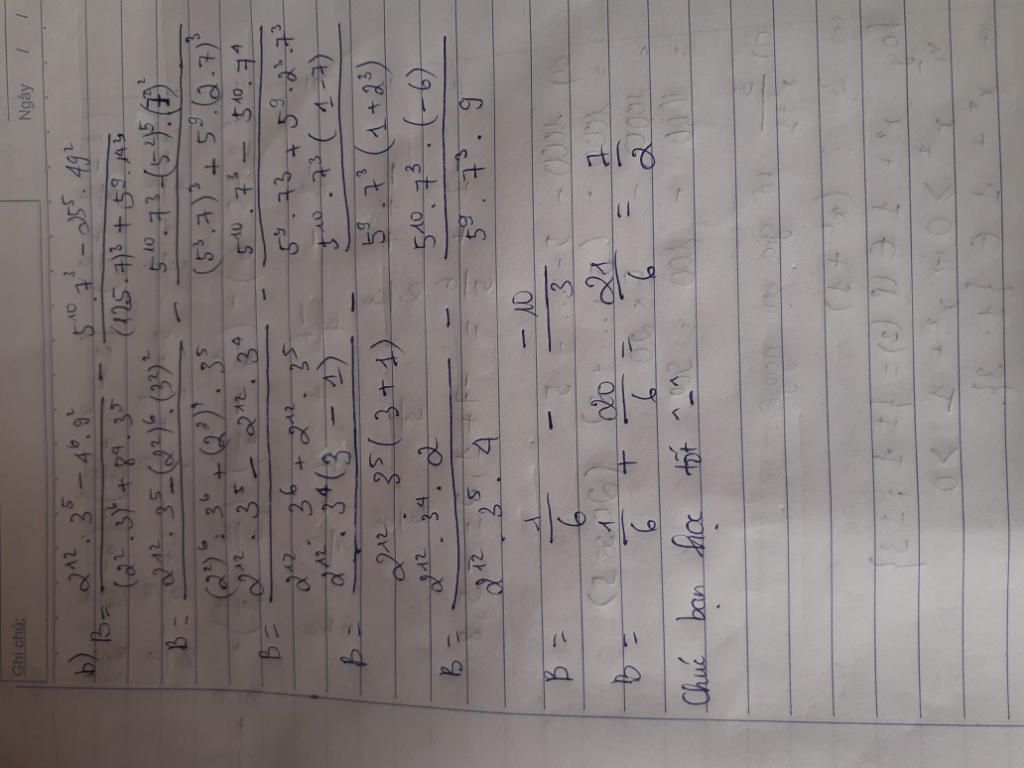 Ghi chú:
Ngày / /
b) B = (2¹² . 3⁵ - 4⁶ . 9²) / ((2² . 3)⁶ + 8⁴ . 3⁵) - (5¹⁰ . 7³ - 25⁵ . 49²) / ((125 . 7)³ + 5⁹ . 14³)
B = (2¹² . 3⁵ - (2²)⁶ . (3²)²) / ((2²)⁶ . 3⁶ + (2³)⁴ . 3⁵) - (5¹⁰ . 7³ - (5²)⁵ . (7²)²) / ((5³ . 7)³ + 5⁹ . (2 . 7)³)
B = (2¹² . 3⁵ - 2¹² . 3⁴) / (2¹² . 3⁶ + 2¹² . 3⁵) - (5¹⁰ . 7³ - 5¹⁰ . 7⁴) / (5⁹ . 7³ + 5⁹ . 2³ . 7³)
B = (2¹² . 3⁴ (3 - 1)) / (2¹² 3⁵ (3 + 1)) - (5¹⁰ . 7³ (1 - 7)) / (5⁹ . 7³ (1 + 2³))
B = (2¹² . 3⁴ . 2) / (2¹² . 3⁵ . 4) - (5¹⁰ . 7³ . (-6)) / (5⁹ . 7³ . 9)
B = 1/6 - -10/3
B = 1/6 + 20/6 = 21/6 = 7/2
Chúc bạn học tốt ^-^